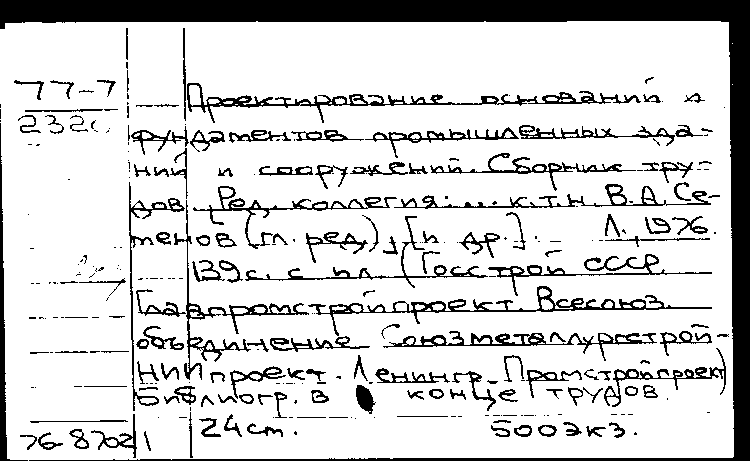 77-7
232С
Проектирование оснований и
фундаментов промышленных зда-
ний и сооружений. Сборник тру-
дов. Ред. коллегия: ... к.т.н. В.А. Се-
менов (гл. ред.), [и др.]. Л., 1976.
139с. с ил. (Госстрой СССР.
Главпромстройпроект. Всесоюз.
объединение Союзметаллургстрой-
НИИпроект. Ленингр. Промстройпроект)
Библиогр. в конце трудов.
24см. 500экз.
76-8702